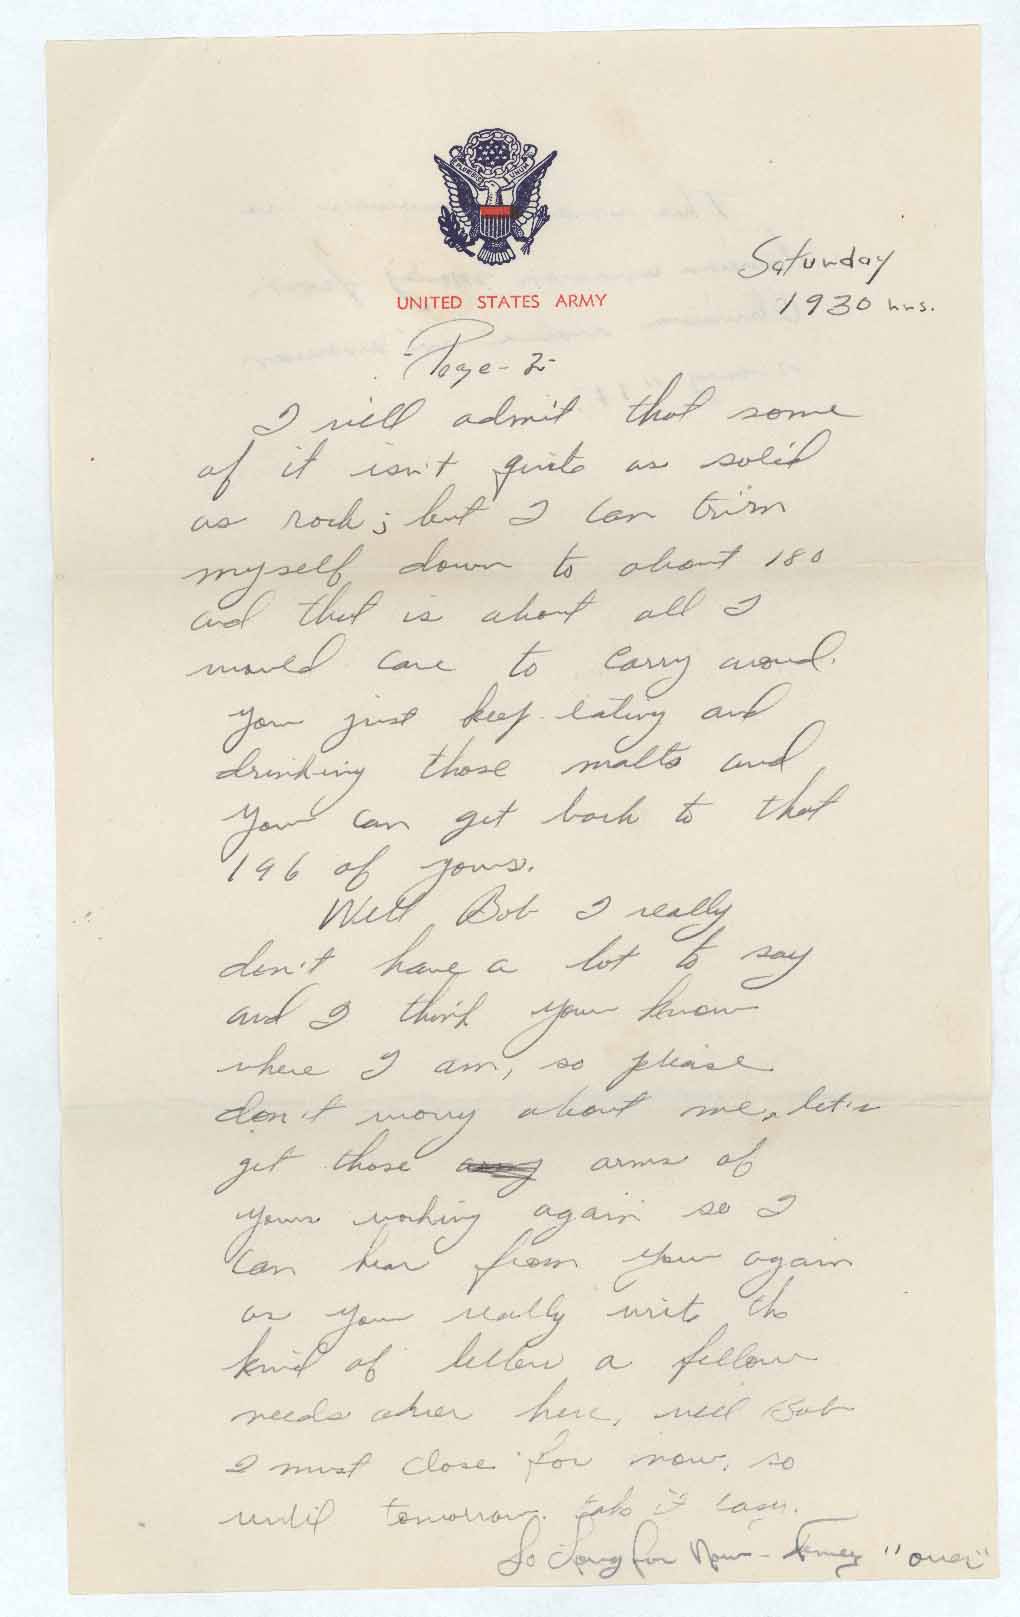 E PLURIBUS UNUM
UNITED STATES ARMY
Saturday
1930 hrs.
-Page-2-
I will admit that some
of it isn't quite as solid
as rock; but I can trim
myself down to about 180
and that is about all I
would care to carry around.
You just keep eating and
drinking those malts and
you can get back to that
196 of yours.
Well Bob I really
don't have a lot to say
and I think you know
where I am, so please
don't worry about me, let's
get those arms of
yours working again so I
can hear from you again
as you really write the
kind of letters a fellow
needs over here, well Bob
I must close for now, so
until tomorrow. take it easy.
So Long for Now - "over"